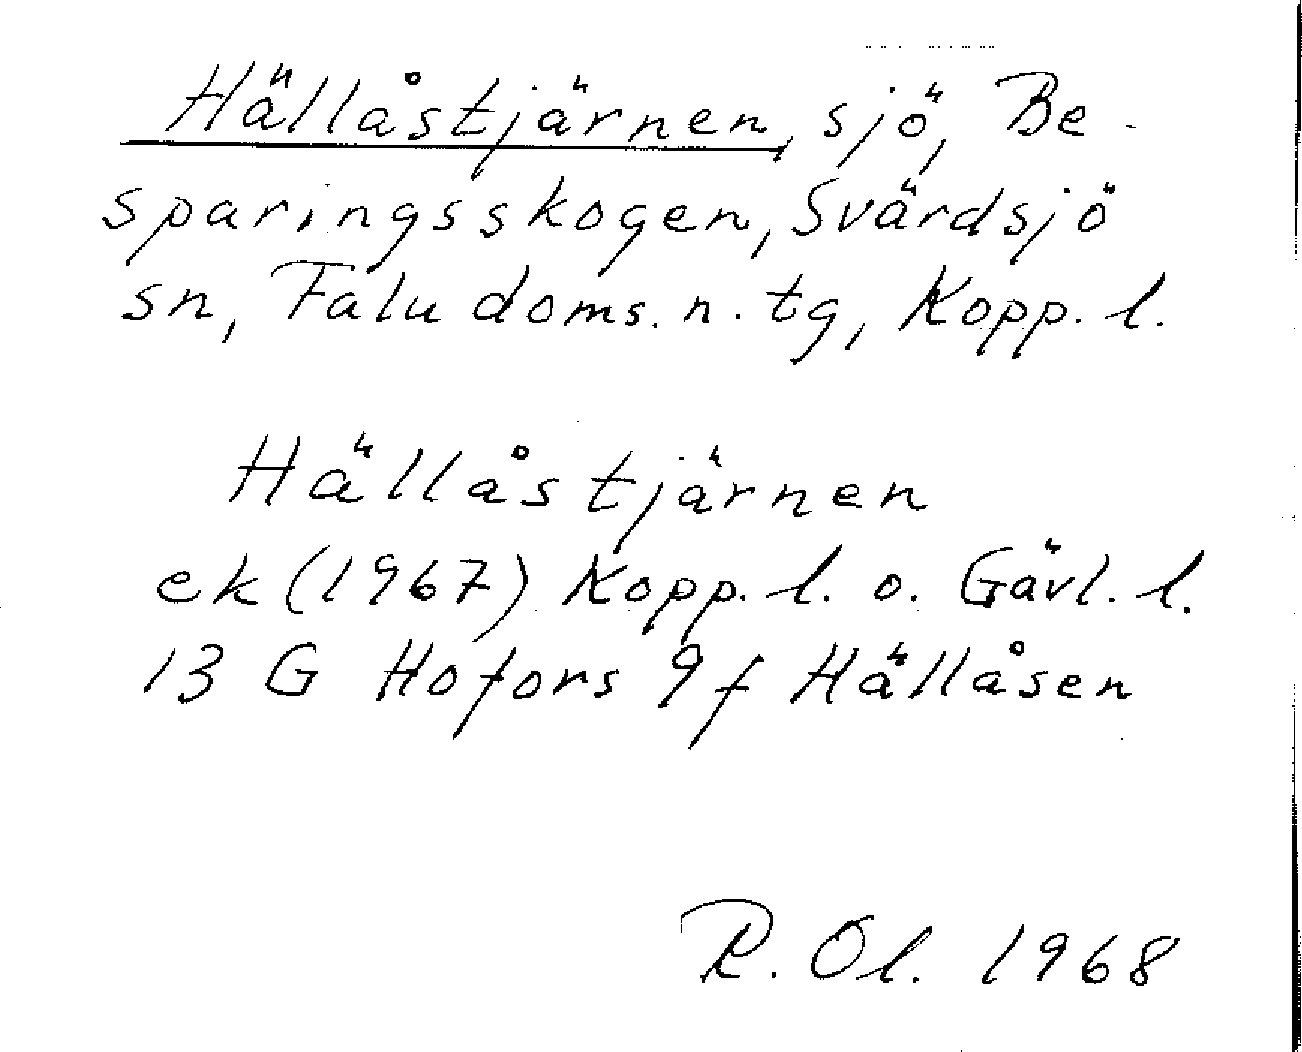 Hällåstjärnen, sjö, Be-
sparingsskogen, Svärdsjö
sn, Falu doms. n. tg, Kopp. l.
Hällåstjärnen
ek (1967) Kopp. l. o. Gävl. l.
13 G Hofors 9f Hällåsen
R. Ol. 1968